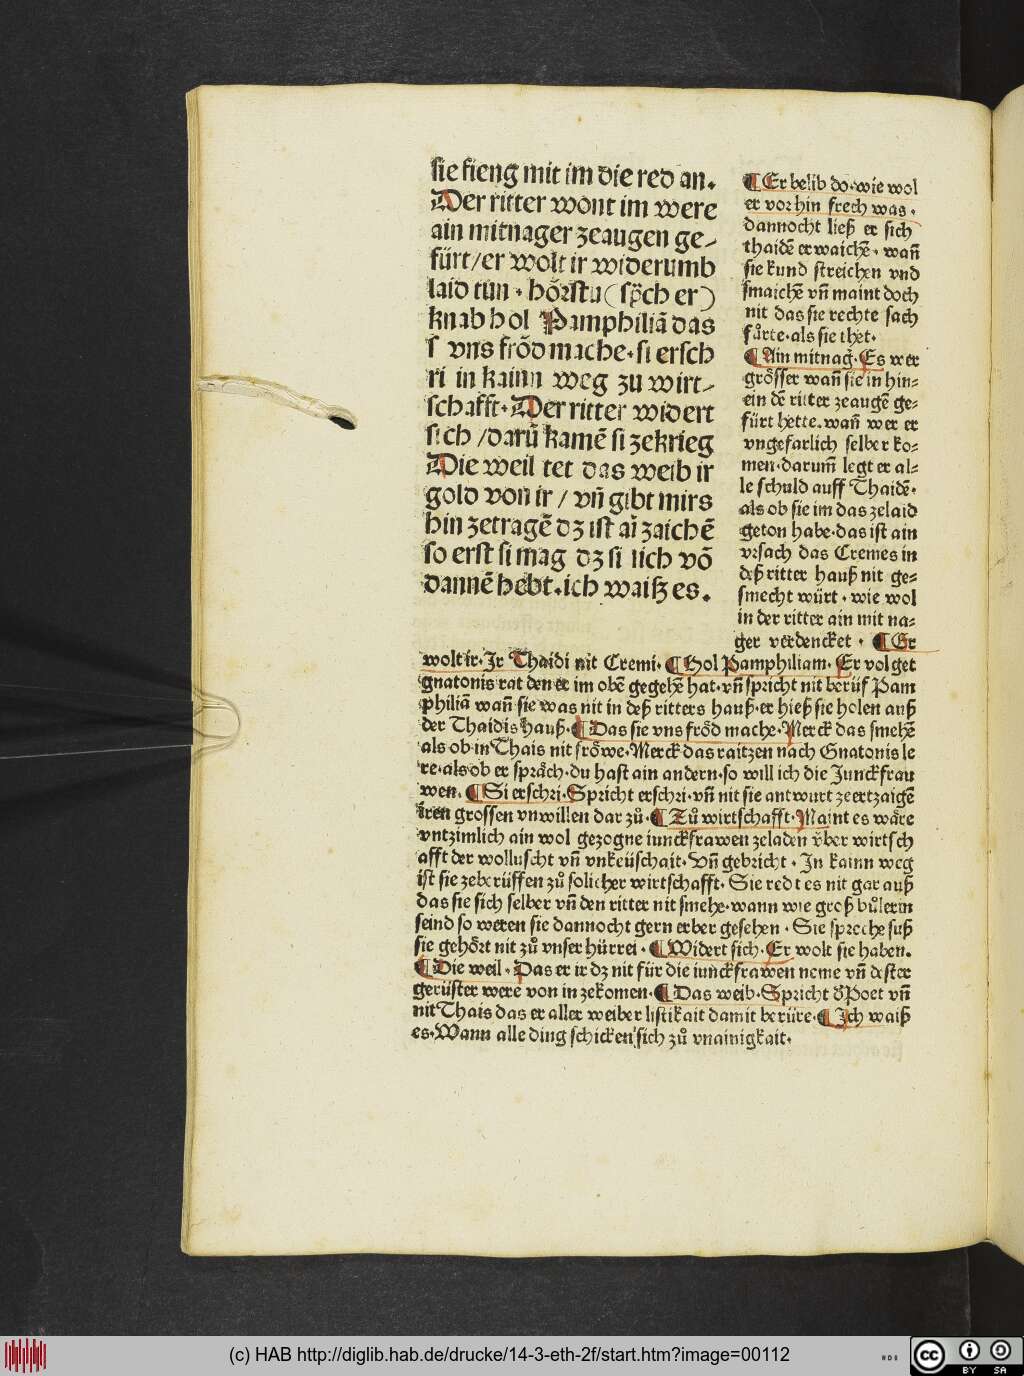 sie fieng mit im die red an.
Der ritter wont im were
ain mitnager zeaugen ge⸗
fürt/er wolt ir widerumb
laid tůn. hörstu (sp̄ch er)
knab hol Pamphiliā das
s vns frőd mache. si ersch
ri in kainn weg zu wirt⸗
schafft. Der ritter widert
sich /darū kamē si zekrieg
Die weil tet das weib ir
gold von ir / vn̄ gibt mirs
hin zetragē dz ist aī zaichē
so erst si mag dz si sich vō
dannē hebt. ich waiß es.
¶ Er belib do. wie wol
er vorhin frech was.
dannocht ließ er sich
thaidē erwaichē. wan̄
sie kund streichen vnd
smaichē vn̄ maint doch
nit das sie rechte sach
fůrte. als sie thet.
¶ Ain mitnaḡ. Es wer
grősser wan̄ sie in hin⸗
ein dē ritter zeaugē ge⸗
fürt hette. wan̄ wer er
vngefarlich selber ko⸗
men. darum̄ legt er al⸗
le schuld auff Thaidē.
als ob sie im das zelaid
geton habe. das ist ain
vrsach das Cremes in
deß ritter hauß nit ge⸗
smecht würt. wie wol
in der ritter ain mit na⸗
ger verdencket. ¶ Er
wolt ir. Ir Thaidi nit Cremi. ¶ Hol Pamphiliam. Er volget
gnatonis rat den er im obē gegebē hat. vn̄ spricht nit berüf Pam
philiā wan̄ sie was nit in deß ritters hauß. er hieß sie holen auß
der Thaidis hauß. ¶ Das sie vns frőd mache. Merck das smehē
als ob in Thais nit frőwe. Merck das raitzen nach Gnatonis le
re. als ob er sprách. du hast ain andern. so will ich die Junckfrau
wen. ¶ Si erschri. Spricht erschri. vn̄ nit sie antwurt zeertzaigē
iren grossen vnwillen dar zů. ¶ Zů wirtschafft. Maint es wáre
vntzimlich ain wol gezogne iunckfrawen zeladen v̈ber wirtsch
afft der wolluscht vn̄ vnkeüschait. Vn̄ gebricht. In kainn weg
ist sie zeberüffen zů solicher wirtschafft. Sie redt es nit gar auß
das sie sich selber vn̄ den ritter nit smehe. wann wie groß bůlerin
seind so weren sie dannocht gern erber gesehen. Sie spreche suß
sie gehőrt nit zů vnser hürrei. ¶ Widert sich. Er wolt sie haben.
¶ Die weil. Das er ir dz nit für die iunckfrawen neme vn̄ dester
gerüster were von in zekomen. ¶ Das weib. Spricht d̄ Poet vn̄
nit Thais das er aller weiber listikait damit berüre. ¶ Ich waiß
es. Wann alle ding schicken sich zů vnainigkait.
(c) HAB http://diglib.hab.de/drucke/14-3-eth-2f/start.htm?image=00112
cc BY SA